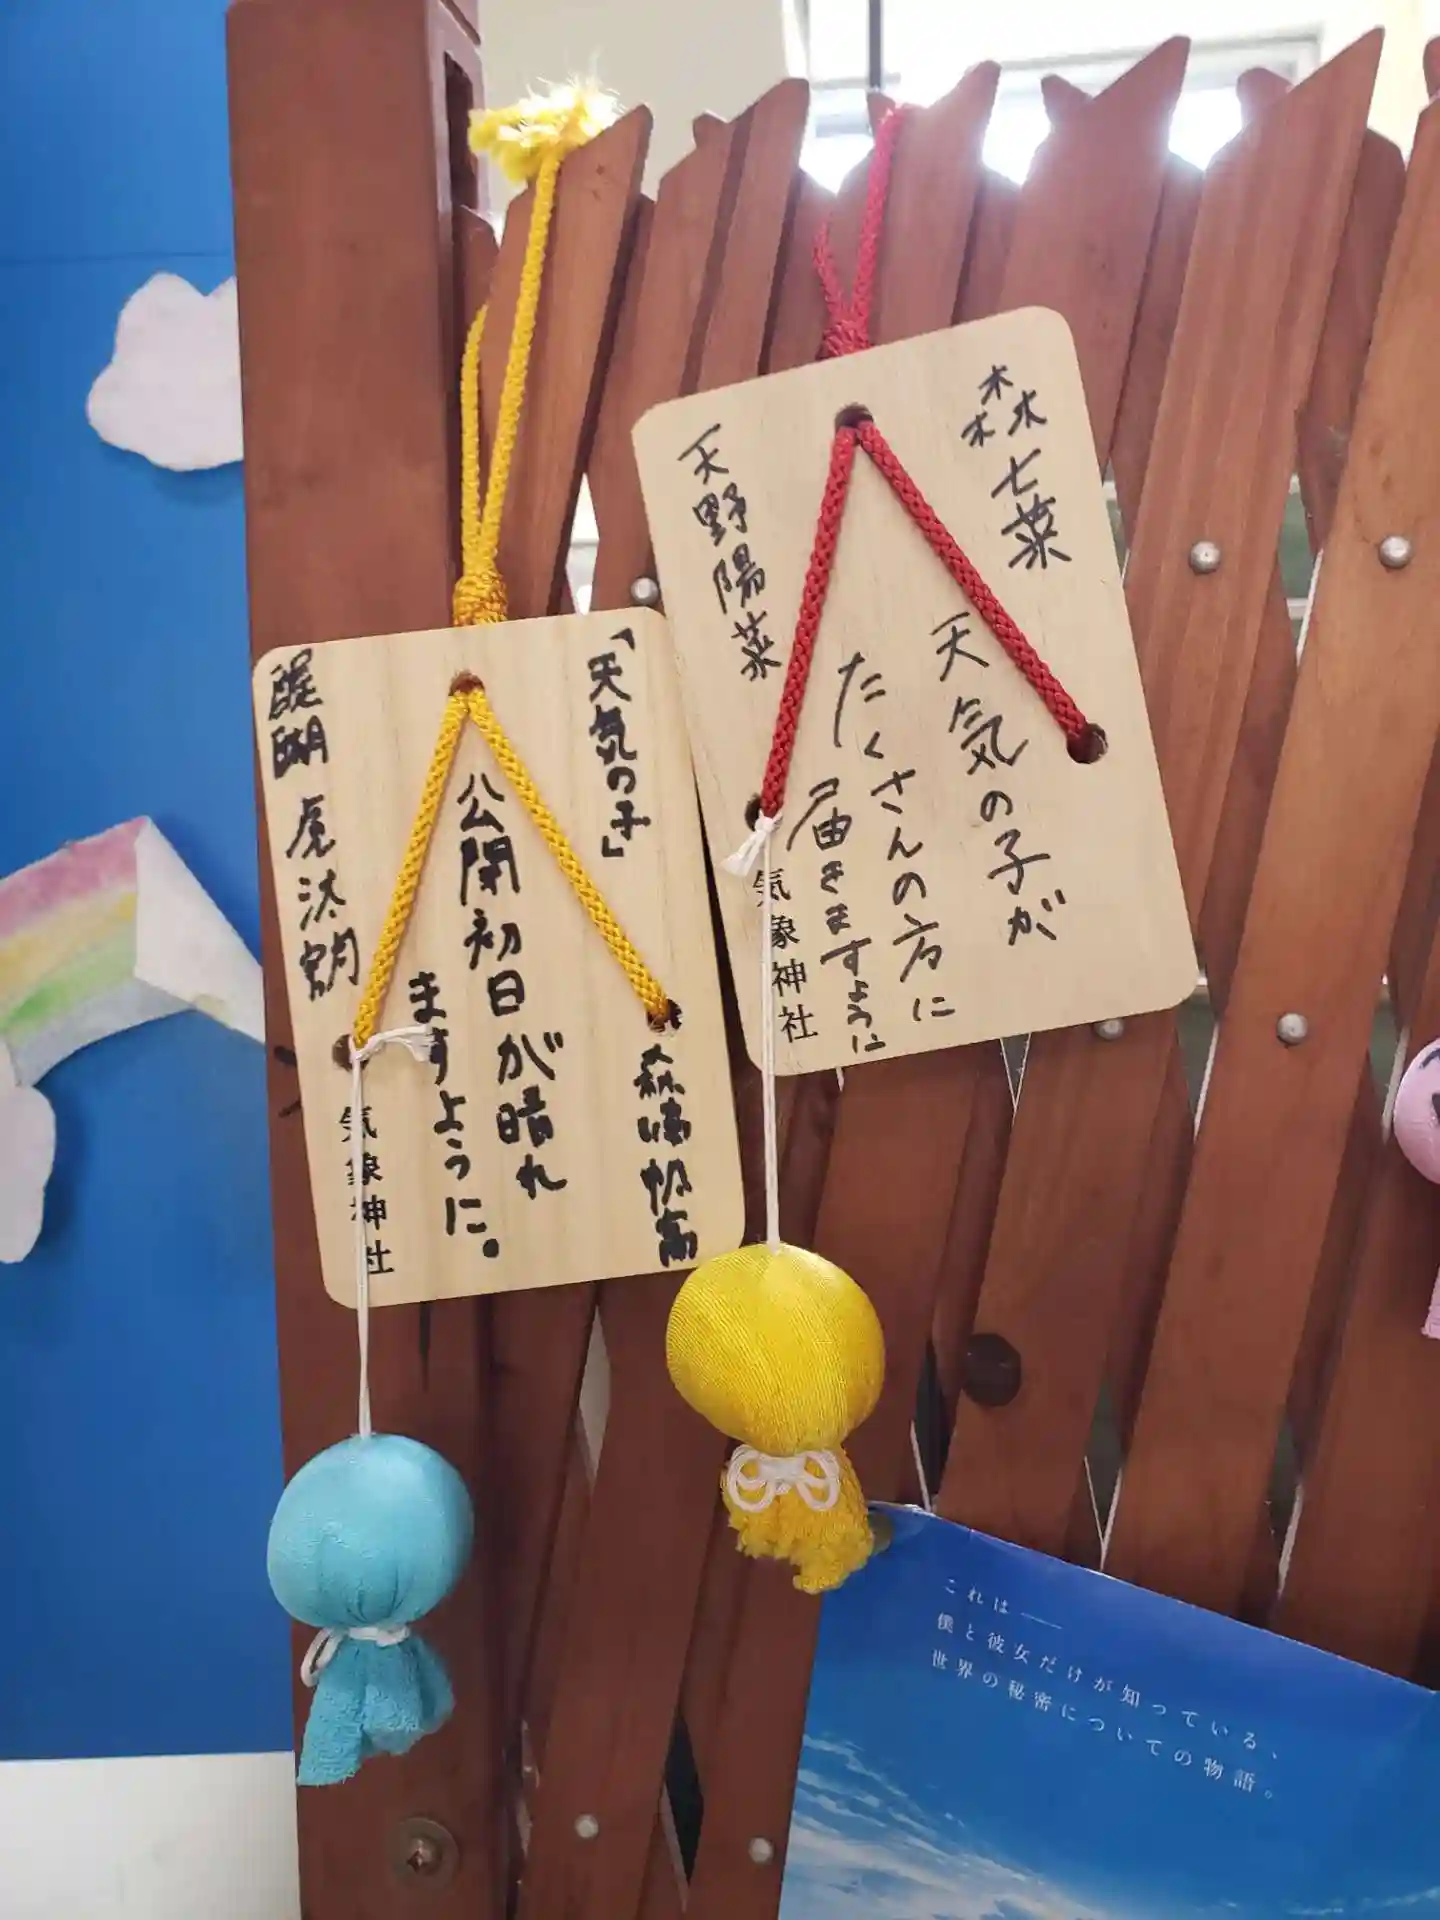 「天気の子」
公開初日が晴れ
ますように。
森嶋帆高
醍醐虎汰朗
気象神社
森七菜
天気の子が
たくさんの方に
届きますように
天野陽菜
気象神社
これは——
僕と彼女だけが知っている、
世界の秘密についての物語。